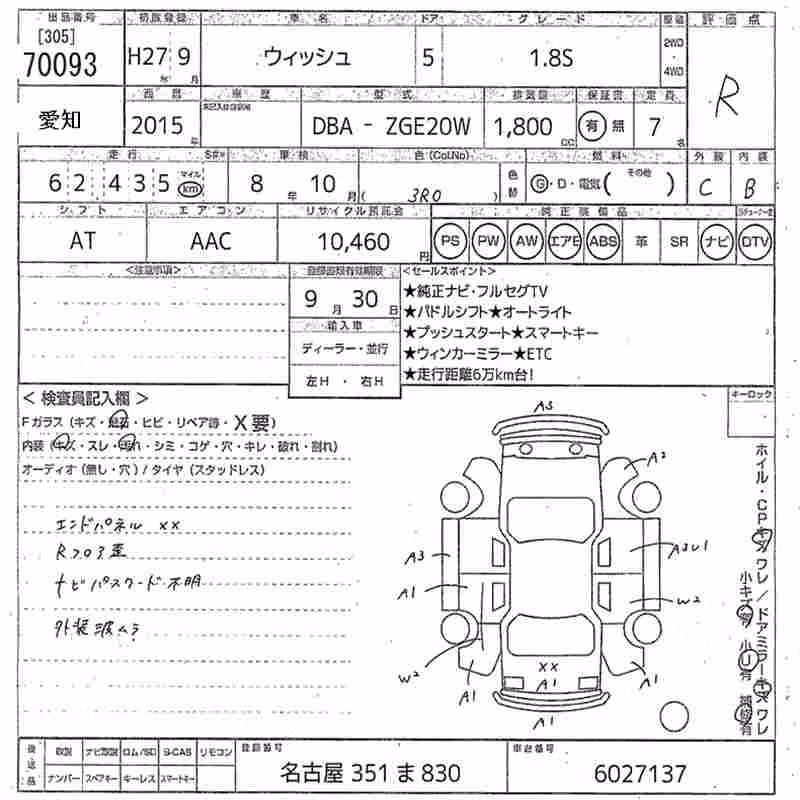 出品番号 初度登録 車名 ドア グレード 駆動 評価点
[305]
70093 H27年 9月 ウィッシュ 5 1.8S 2WD・4WD R
愛知 西暦 車歴 型式 排気量 保証書 定員
2015年 DBA - ZGE20W 1,800cc 有 無 7名
走行 車検 色(Col.No) 色替 燃料 外装 内装
62,435 マイル km 8年 10月 ( 3R0 ) G・D・電気( その他 ) C B
シフト エアコン リサイクル預託金 純正装備品
AT AAC 10,460円 PS PW AW エアB ABS 革 SR ナビ DTV
<注意事項> 登録書類有効期限 <セールスポイント>
9月 30日
輸入車
ディーラー・並行
左H ・ 右H
★純正ナビ・フルセグTV
★パドルシフト★オートライト
★プッシュスタート★スマートキー
★ウィンカーミラー★ETC
★走行距離6万km台!
キーロック
< 検査員記入欄 >
Fガラス (キズ・飛石・ヒビ・リペア跡・X要)
内装 (キズ・スレ・汚れ・シミ・コゲ・穴・キレ・破れ・割れ)
オーディオ (無し・穴) / タイヤ (スタッドレス)
エンドパネル ××
Rフロア歪
ナビパスワード不明
外装波ムラ
A3
A2
A3
A3U1
A1
W2
W2
A1
××
A1
A1
A1
ホイル・CPキズワレ/ドアミラーキズワレ
小キズ有 小U有 補修有
後送品 取説 ナビ取説 ロム/SD B-CAS リモコン
ナンバー スペアキー キーレス スマートキー
登録番号 名古屋 351 ま 830
車台番号 6027137